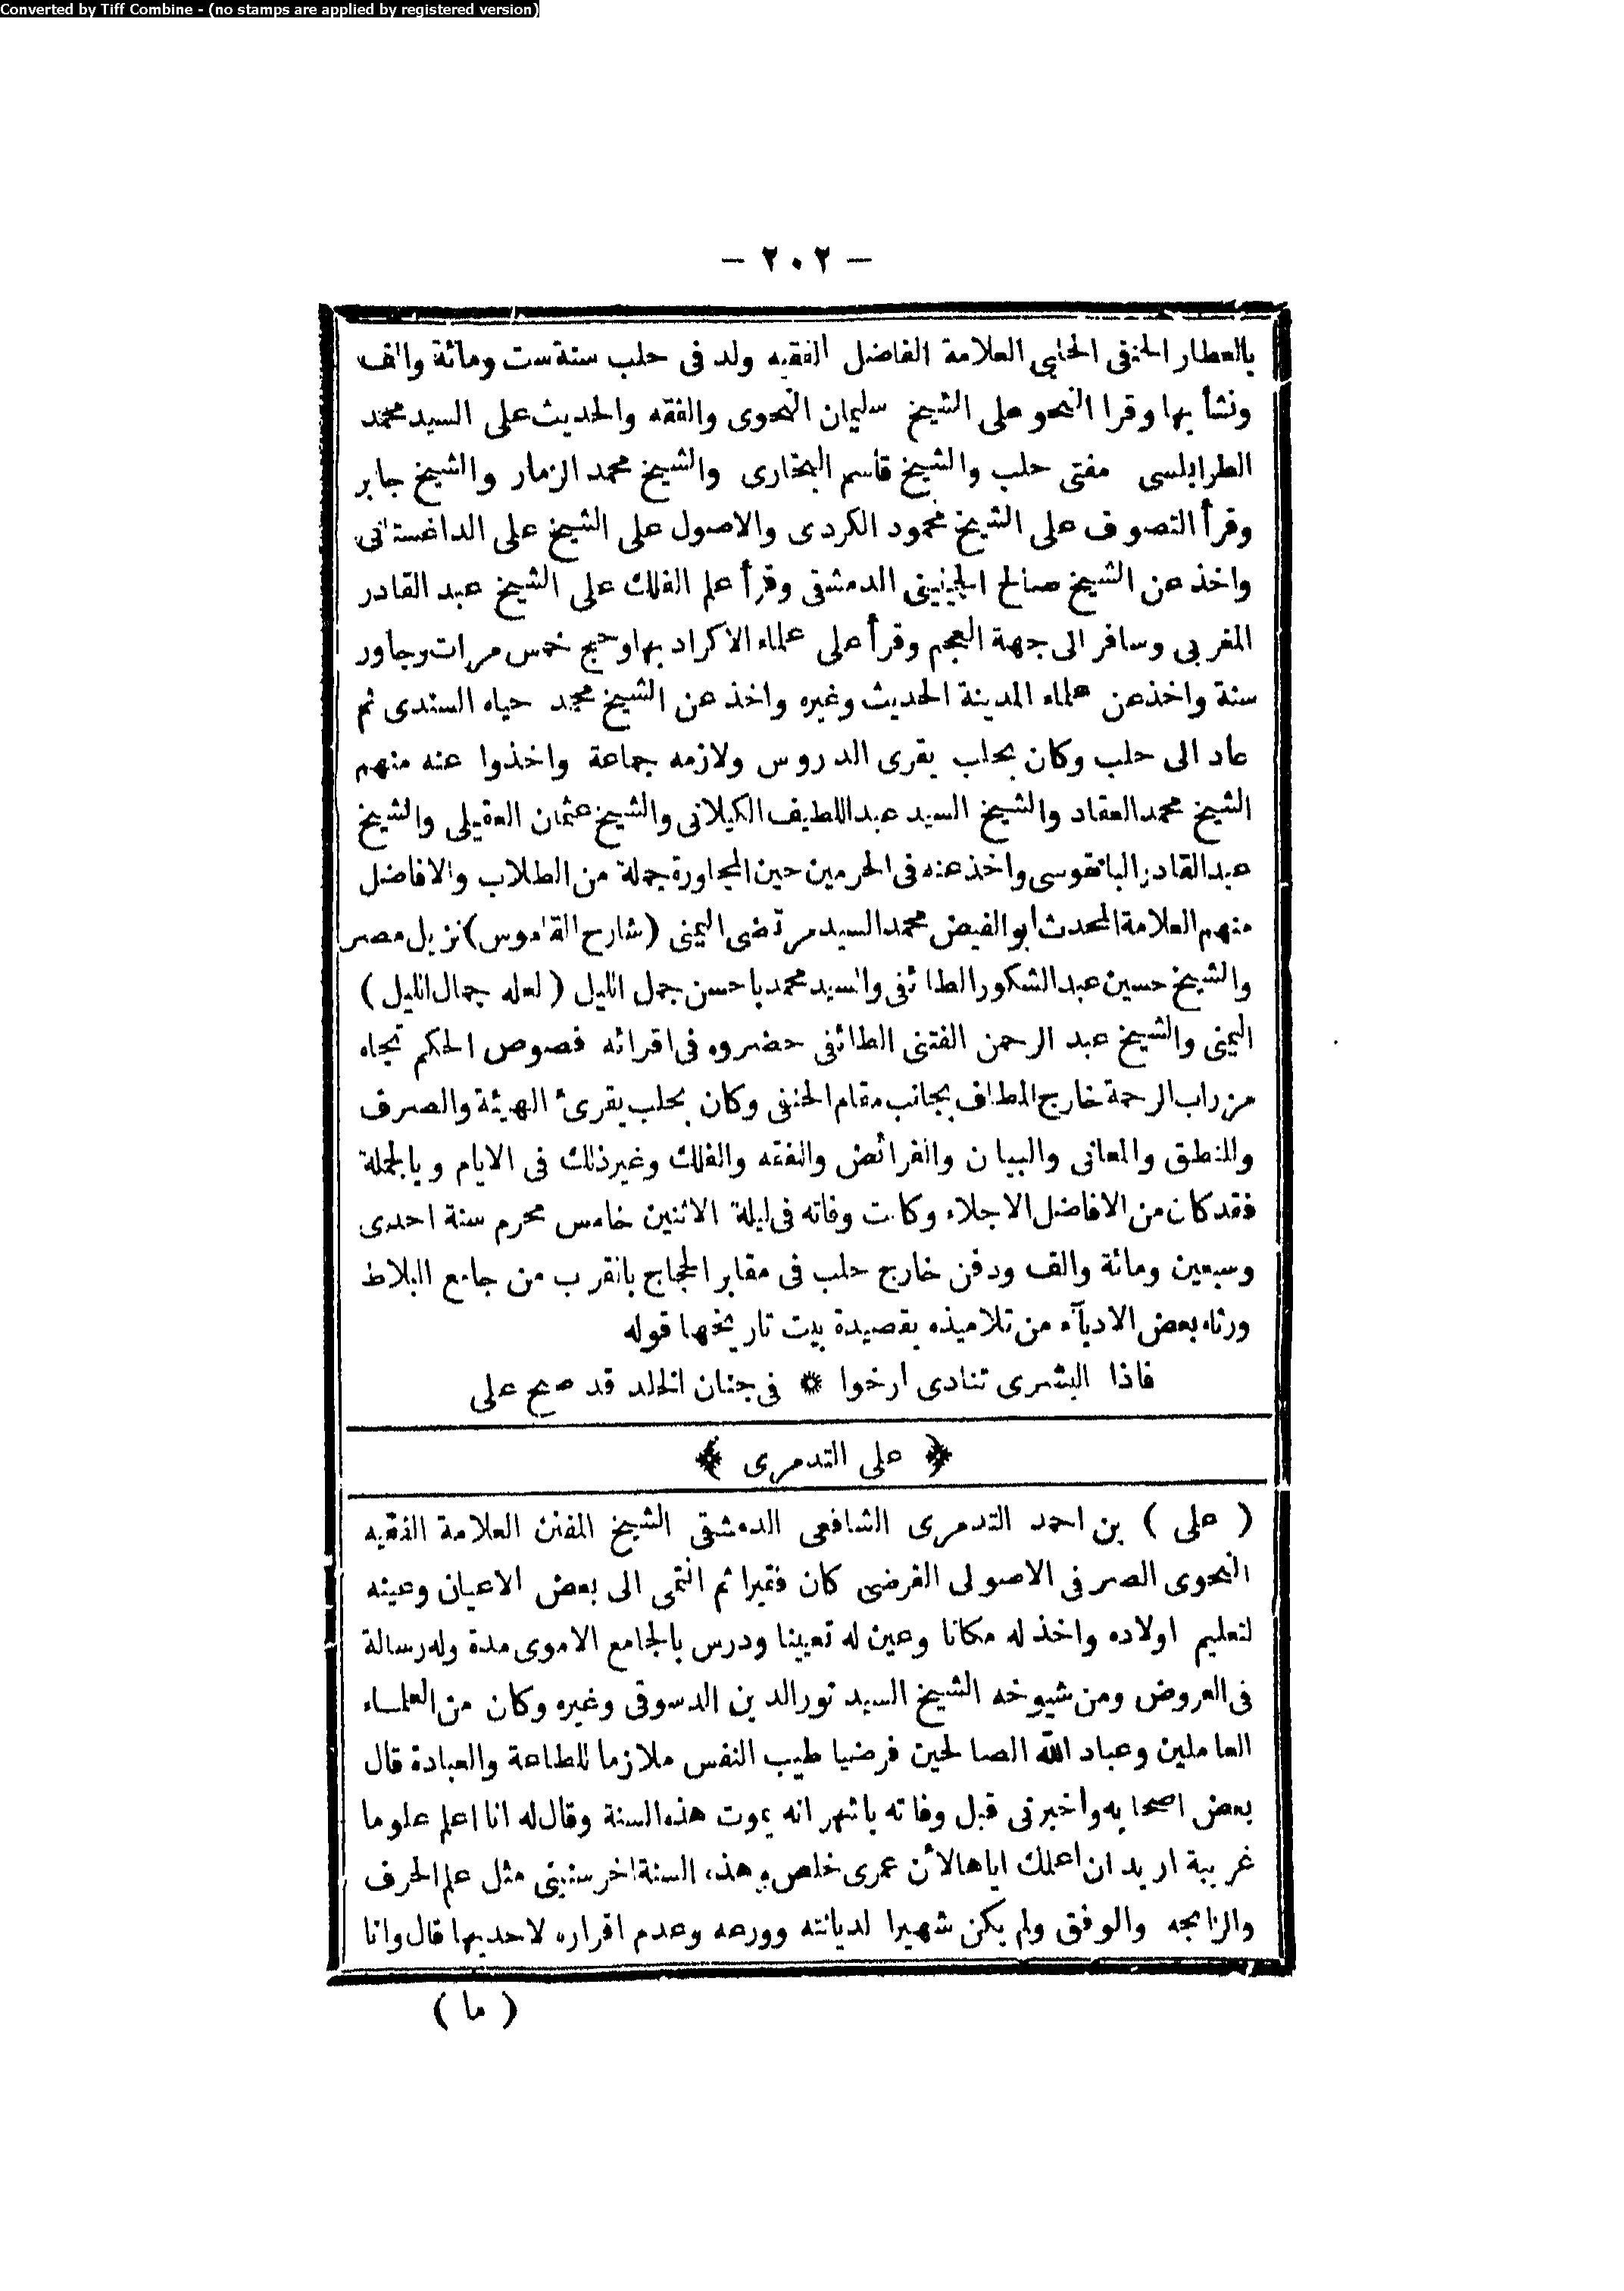 Converted by Tiff Combine - (no stamps are applied by registered version)
— ٢٠٢ —
بالعطار الحنفى الحلبى العلامة الفاضل الفقيه ولد فى حلب سنة ست ومائة والف
ونشأ بها وقرا النحو على الشيخ سليمان النحوى والفقه والحديث على السيد محمد
الطرابلسى مفتى حلب والشيخ قاسم البخارى والشيخ محمد الزمار والشيخ جابر
وقرأ التصوف على الشيخ محمود الكردى والاصول على الشيخ على الداغستانى
واخذ عن الشيخ صالح الجينينى الدمشقى وقرأ علم الفلك على الشيخ عبد القادر
المغربى وسافر الى جهة العجم وقرأ على علماء الاكراد بها وحج خمس مرات وجاور
سنة واخذ عن علماء المدينة الحديث وغيره واخذ عن الشيخ محمد حياه السندى ثم
عاد الى حلب وكان بحلب يقرى الدروس ولازمه جماعة واخذوا عنه منهم
الشيخ محمد العقاد والشيخ السيد عبد اللطيف الكيلانى والشيخ عثمان العقيلى والشيخ
عبد القادر البانقوسى واخذ عنه فى الحرمين حين المجاورة جملة من الطلاب والافاضل
منهم العلامة المحدث أبو الفيض محمد السيد مرتضى اليمنى (شارح القاموس) نزيل مصر
والشيخ حسين عبد الشكور الطائفى والسيد محمد باحسن جمل الليل (لعله جمال الليل)
اليمنى والشيخ عبد الرحمن الفتنى الطائفى حضروه فى اقرائه فصوص الحكم تجاه
مزراب الرحمة خارج المطاف بجانب مقام الحنفى وكان بحلب يقرئ الهيئة والصرف
والمنطق والمعانى والبيان والفرائض والفقه والفلك وغير ذلك فى الايام وبالجملة
فقد كان من الافاضل الاجلاء وكانت وفاته فى ليلة الاثنين خامس محرم سنة احدى
وسبعين ومائة والف ودفن خارج حلب فى مقابر الحجاج بالقرب من جامع البلاط
ورثاه بعض الادبآء من تلاميذه بقصيدة بيت تاريخها قوله
فاذا البشرى تنادى ارخوا * فى جنان الخلد قد صح على
﴿ على التدمرى ﴾
( على ) بن احمد التدمرى الشافعى الدمشقى الشيخ المفنن العلامة الفقيه
النحوى الصرفى الاصولى الفرضى كان فقيرا ثم انتمى الى بعض الاعيان وعينه
لتعليم اولاده واخذ له مكانا وعين له تعيينا ودرس بالجامع الاموى مدة وله رسالة
فى العروض ومن شيوخه الشيخ السيد نور الدين الدسوقى وغيره وكان من العلماء
العاملين وعباد الله الصالحين فرضيا طيب النفس ملازما للطاعة والعبادة قال
بعض اصحابه واخبرنى قبل وفاته باشهر انه يموت هذه السنة وقال له انا اعلم علوما
غريبة اريد ان اعلمك اياها لأن عمرى خلص وهذه السنة اخر سنينى مثل علم الحرف
والزايجه والوفق ولم يكن شهيرا لديانته وورعه وعدم اقراره لاحد بها قال وانا
( ما )